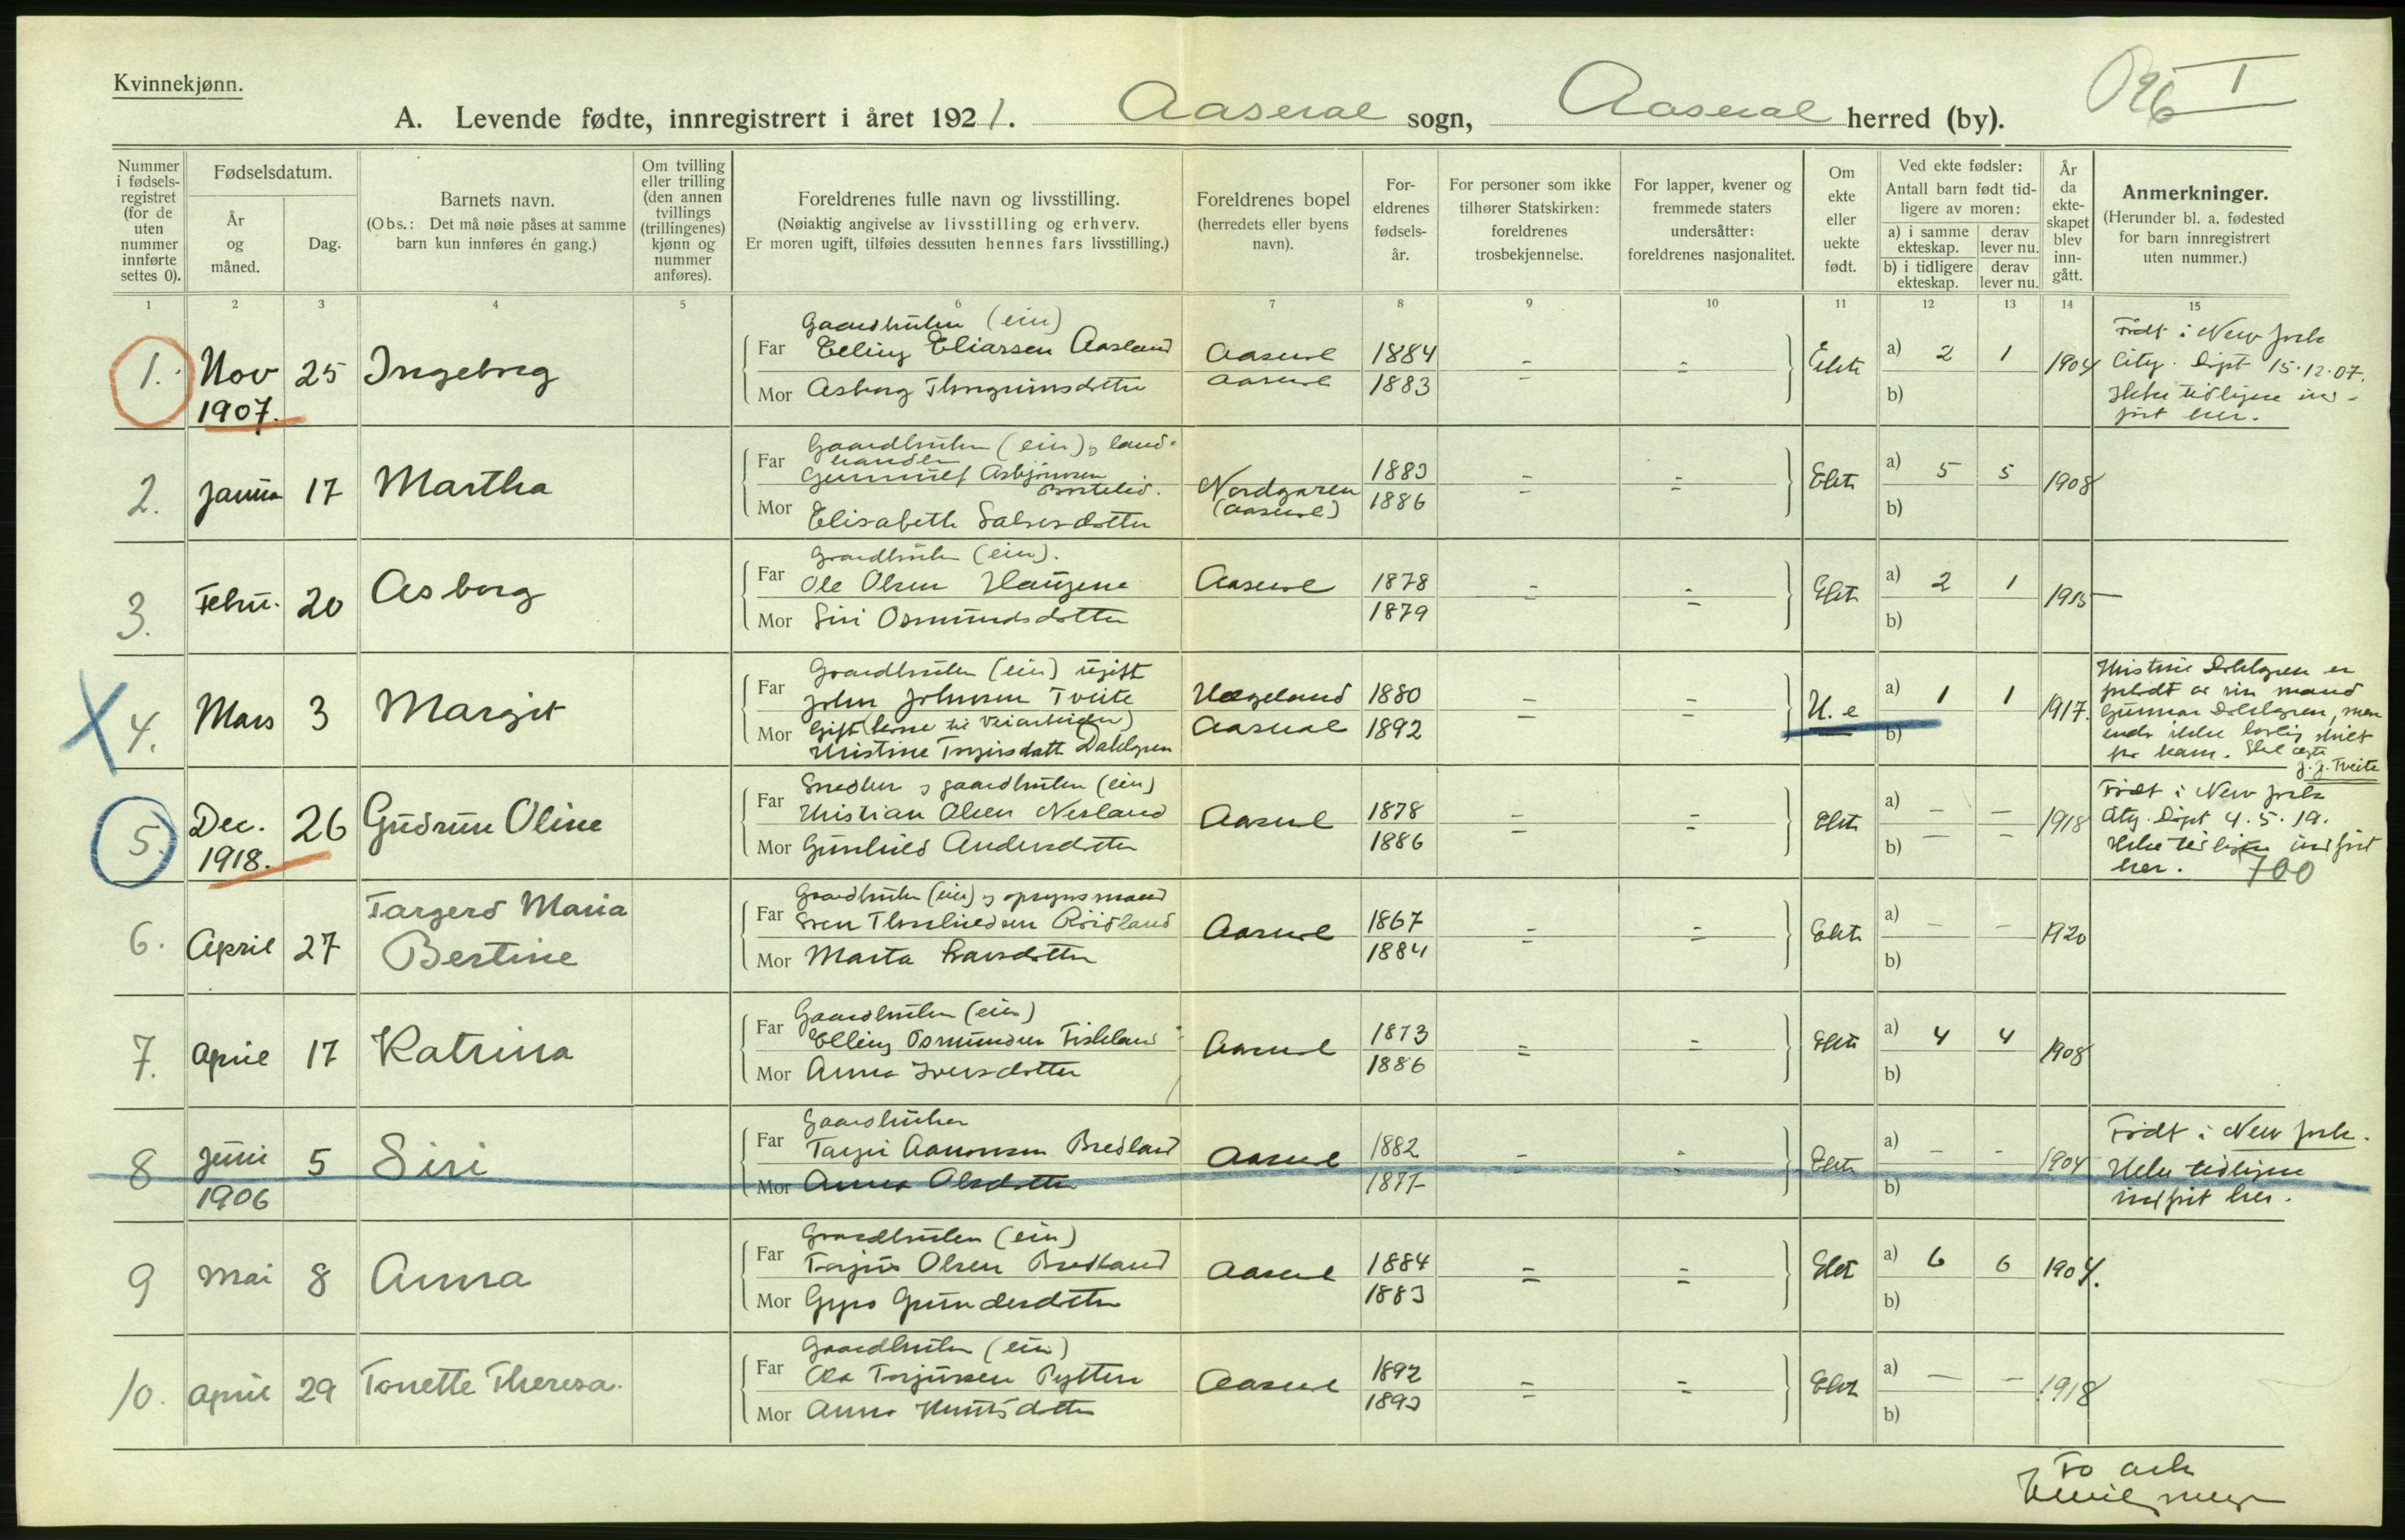 Kvinnekjønn.
A. Levende fødte, innregistrert i året 1921. Aaseral sogn, Aaseral herred (by).
I
Nummer i fødsels-registret (for de uten nummer innførte settes 0).
Fødselsdatum.
År og måned.
Dag.
Barnets navn.
(Obs.: Det må nøie påses at samme barn kun innføres én gang.)
Om tvilling eller trilling (den annen tvillings (trillingenes) kjønn og nummer anføres).
Foreldrenes fulle navn og livsstilling.
(Nøiaktig angivelse av livsstilling og erhverv.
Er moren ugift, tilføies dessuten hennes fars livsstilling.)
Foreldrenes bopel
(herredets eller byens navn).
For-eldrenes fødsels-år.
For personer som ikke tilhører Statskirken: foreldrenes trosbekjennelse.
For lapper, kvener og fremmede staters undersåtter: foreldrenes nasjonalitet.
Om ekte eller uekte født.
Ved ekte fødsler:
Antall barn født tid-ligere av moren:
a) i samme ekteskap.
derav lever nu.
b) i tidligere ekteskap.
derav lever nu.
År da ekte-skapet blev inn-gått.
Anmerkninger.
(Herunder bl. a. fødested for barn innregistrert uten nummer.)
1 2 3 4 5 6 7 8 9 10 11 12 13 14 15
1. Nov 1907. 25 Ingeborg
Gaardbruker (ein)
Far Elling Eliarsen Aasland Aaseral 1884
Mor Asborg Thorgrimsdotter Aaseral 1883
= = Ekte a) 2 1 1904
b)
Født i New York
City. Døpt 15.12.07.
Ikke tidligere ind-
ført her.
2. Janua 17 Martha
Gaardbruker (ein) og land-
handler
Far Gunnulf Asbjørnsen Bortelid. 1883
Mor Elisabeth Salvesdotter 1886
Nordgaren
(Aaseral)
= = Ekte a) 5 5 1908
b)
3. Febru. 20 Asborg
Gaardbruker (ein).
Far Ole Olsen Haugene Aaseral 1878
Mor Siri Osmundsdotter 1879
= = Ekte a) 2 1 1913
b)
4. Mars 3 Margit
Gaardbruker (ein) ugift
Far John Johnsen Tveite Hægeland 1880
Mor Gift (kone til veiarbeider) Aaseral 1892
Kristine Torgirsdatt Dahlgren
= = U. e a) 1 1 1917.
b)
Kristine Dahlgren er
av sin mand
Gunnar Dahlgren, men
endu ikke lovlig skilt
J. J. Tveite
5. Dec. 1918. 26 Gudrun Oline
Snedker og gaardbruker (ein)
Far Kristian Olsen Nesland Aaseral 1878
Mor Gunhild Andersdotter 1886
= = Ekte a) — — 1918
b) — —
Født i New York
City. Døpt 4.5.19.
Ikke tidligere indført
her. 700
6. April 27 Targerd Maria
Bertine
Gaardbruker (ein) og opsynsmand
Far Sven Thorkildsen Røisland Aaseral 1867
Mor Marta Larsdotter 1884
= = Ekte a) — — 1920
b)
7. April 17 Katrina
Gaardbruker (ein)
Far Elling Osmundsen Fiskland Aaseral 1873
Mor Anna Iversdotter 1886
= = Ekte a) 4 4 1908
b)
8 Juni 1906 5 Siri
Gaardbruker
Far Targei Aanonsen Bredland Aaseral 1882
Mor Anna Olsdotter 1877
- - Ekte a) - - 1904
b)
Født i New York.
Ikke tidligere
indført her.
9 Mai 8 Anna
Gaardbruker (ein)
Far Torjus Olsen Bredland Aaseral 1884
Mor Gyro Gundersdotter 1883
= = Ekte a) 6 6 1904.
b)
10. April 29 Tonette Theresa.
Gaardbruker (ein)
Far Ola Torjussen Pytten Aaseral 1892
Mor Anna Knutsdotter 1893
= = Ekte a) — — 1918
b)
To ark